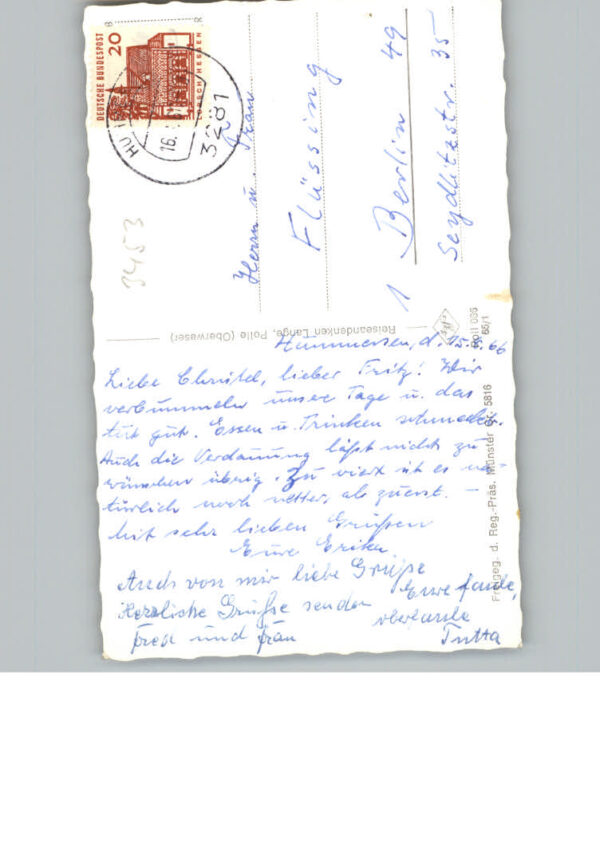 DEUTSCHE BUNDESPOST
20
LORSCH/HESSEN
B R
3281
16.
Herrn u. Frau
Flüssing
1 Berlin 49
Seydlitzstr. 35
3453
Reiseandenken Lange, Polle (Oberweser)
Poll 036
65/1
Freigeg. d. Reg.-Präs. Münster 5816
Hummersen, d. 15. 66
Liebe Christel, lieber Fritz! Wir
verbummeln unsere Tage u. das
tut gut. Essen u. Trinken schmeckt.
Auch die Verdauung läßt nicht zu
wünschen übrig. Zu viert ist es na-
türlich noch netter, als zuerst. –
Mit sehr lieben Grüßen
Eure Erika
Auch von mir liebe Grüße
Eure
Herzliche Grüße senden
Fred und Frau
Jutta